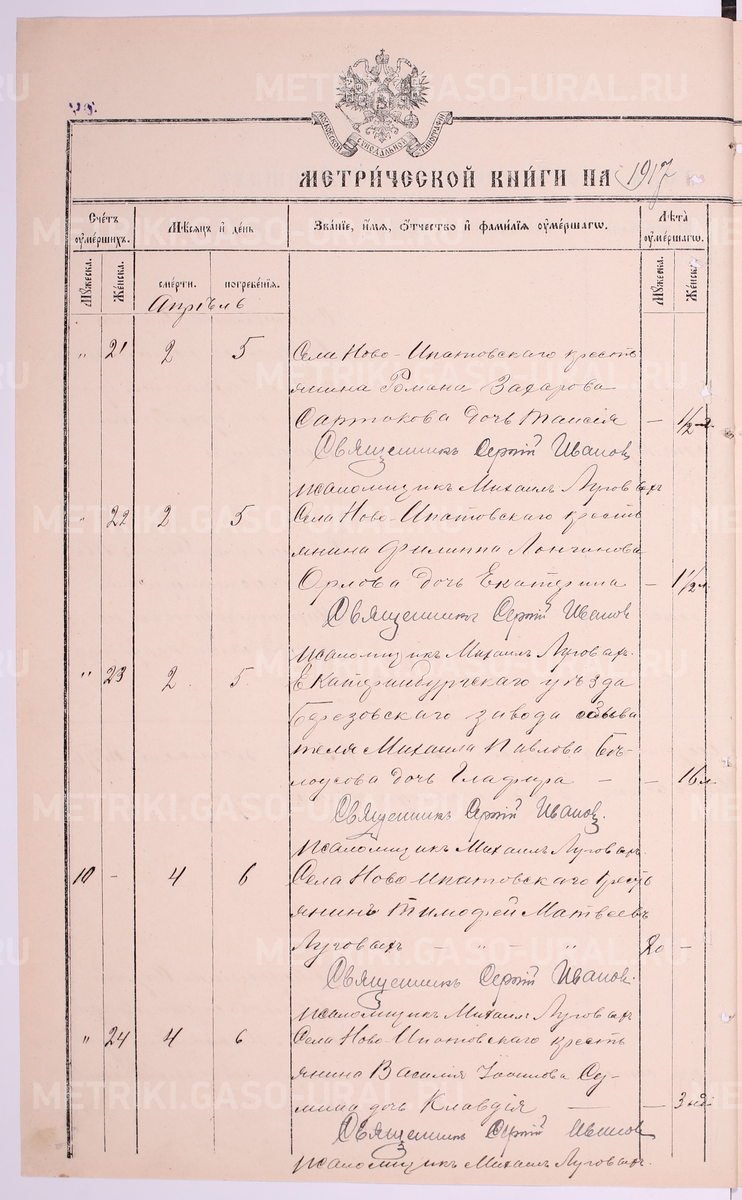 METRIKI.GASO-URAL.RU
МОСКОВСКОЙ СѴНОДАЛЬНОЙ ТИПОГРАФІИ
МЕТРИ́ЧЕСКОЙ КНИ́ГИ НА 1917
Сче́тъ оу҆ме́ршихъ.
Мѣ́сяцъ и҆ де́нь
Зва́нїе, и҆́мя, ѻ҆́тчество и҆ фами́лїя оу҆ме́ршагѡ.
Лѣ́та оу҆ме́ршагѡ.
Мꙋ́жеска.
Же́нска.
сме́рти.
погребе́нїя.
Мꙋ́жеска.
Же́нска.
Апрѣль
" 21 2 5 Села Ново-Ипатовскаго кресть
янина Романа Захарова
Сартакова дочь Таисія — 1/2 л.
Священникъ Сергій Иванов
псаломщикъ Михаилъ Луговыхъ
" 22 2 5 Села Ново-Ипатовскаго кресть
янина Филиппа Лонгинова
Орлова дочь Екатерина — 1 1/2 л.
Священникъ Сергій Иванов
псаломщикъ Михаилъ Луговыхъ.
" 23 2. 5. Екатеринбургскаго уѣзда
Березовскаго завода обыва
теля Михаила Павлова Бѣ-
лоусова дочь Глафира — — 16 л.
Священникъ Сергій Иванов.
псаломщикъ Михаилъ Луговыхъ.
10 - 4 6 Села Ново Ипатовскаго кресть
янинъ Тимофей Матвеевъ
Луговыхъ — " — " 20 —
Священникъ Сергій Иванов.
псаломщикъ Михаилъ Луговыхъ
" 24 4 6 Села Ново-Ипатовскаго кресть
янина Василія Су-
мина дочь Клавдія — — 3 нед.
Священникъ Сергій Иванов
псаломщикъ Михаилъ Луговыхъ.